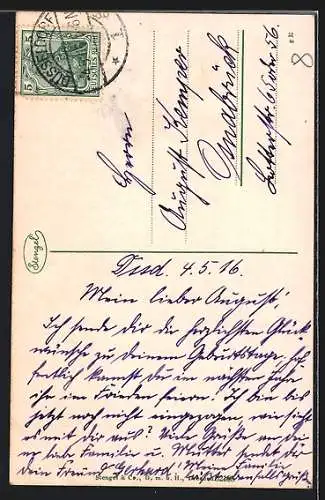 DÜSSELDORF
5
DEUTSCHES REICH
8
Herrn
August Kemper
Osnabrück
56.
Stengel
Dssd. 4.5.16.
Mein lieber August!
Ich sende dir die herzlichsten Glück
wünsche zu deinem Geburtstage, hof
fentlich kannst du im nächsten Jahre
ihn im Frieden feiern. Ich bin bis
jetzt noch nicht eingezogen, wie sieht
es mit dir aus? Viele Grüße an dei
ne liebe Familie u. Mutter sendet dir
dein Freund Gerhard. Meine Familie
Stengel & Co., G. m. b. H.,